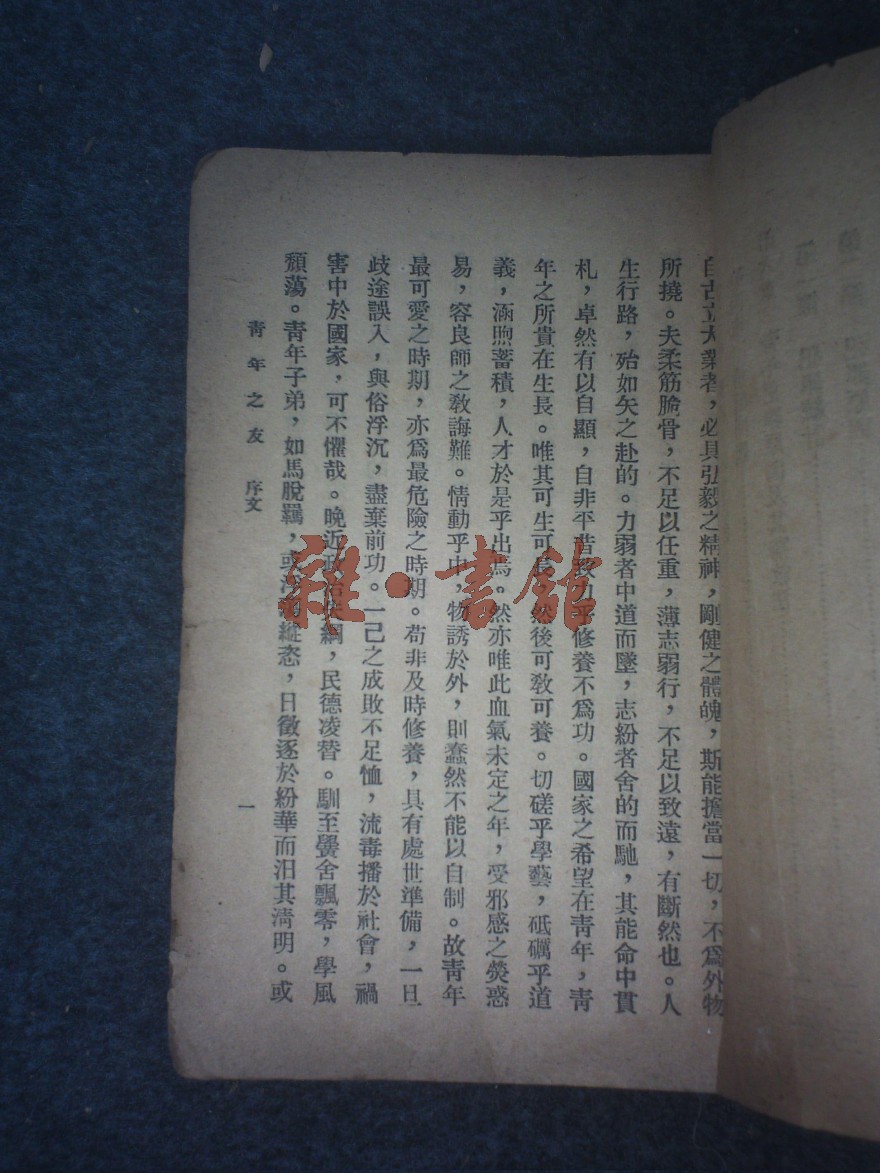 自古立大業者，必具弘毅之精神，剛健之體魄，斯能擔當一切，不爲外物
所撓。夫柔筋脆骨，不足以任重，薄志弱行，不足以致遠，有斷然也。人
生行路，殆如矢之赴的。力弱者中道而墜，志紛者舍的而馳，其能命中貫
札，卓然有以自顯，自非平昔致力乎修養不爲功。國家之希望在靑年，靑
年之所貴在生長。唯其可生可長，然後可敎可養。切磋乎學藝，砥礪乎道
義，涵煦蓄積，人才於是乎出焉。然亦唯此血氣未定之年，受邪感之熒惑
易，容良師之敎誨難。情動乎中，物誘於外，則蠢然不能以自制。故靑年
最可愛之時期，亦爲最危險之時期。苟非及時修養，具有處世準備，一旦
歧途誤入，與俗浮沉，盡棄前功。一己之成敗不足恤，流毒播於社會，禍
害中於國家，可不懼哉。晚近政治失綱，民德凌替。馴至黌舍飄零，學風
頹蕩。靑年子弟，如馬脫羈，或縱恣，日徵逐於紛華而汨其淸明。或
靑年之友 序文
一
雜·書館